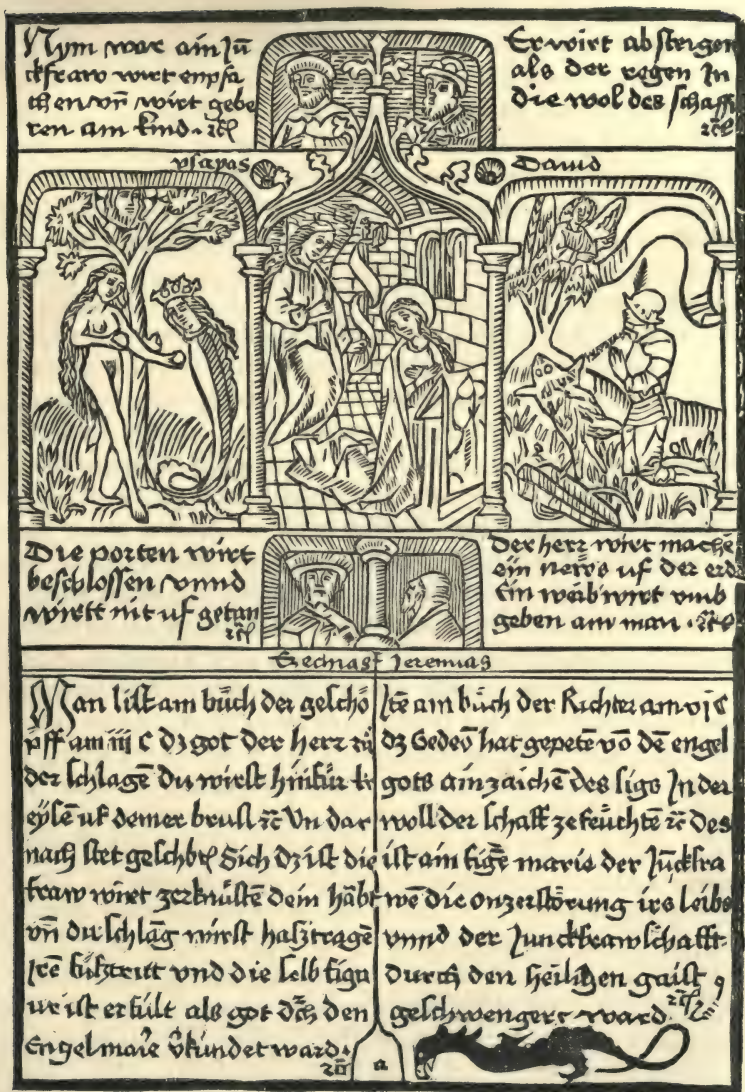 Nym war ain Jū
ckfraw wirt enpfa
chen vn̄ wirt gebe
ren ain kind. ꝛcͭ
Er wirt absteigen
als der regen In
die wol des schaffs
ꝛcͭ
ysayas
Dauid
Die porten wirt
beschlossen vnnd
wirtt nit uf getan
ꝛcͭ
Der herr wirt mache
ein news uf der erd
Ein weib wirt vmb
geben ain man. ꝛcͭ
Ezechias
Jeremias
Man list am bůch der geschö
pff am iij c dz got der herr zů
der schlangē Du wirst hinfür kr
eysē uf deiner brust ꝛc Vn dar
nach stet geschbē Sich dz ist die
fraw wirt zerknüstē dein habt
vn̄ du schlāg wirst hasz tragē
Irē fůsztritt vnd die selb figu
ur ist erfült als got dch den
Engel marie v̄kündet ward.
ꝛcͭ
Itē am bůch der Richter am vj c
dz Gedeō hat gepetē vō dē engel
gots ain zaichē des sigs In der
woll der schaff ze feüchtē ꝛc des
ist ain figē marie der Jūckfra
wē die on zerstörung irs leibs
vnnd der Junckfrawschafft
durch den heiligen gaist
geschwengert ward.
ꝛcͭ
a